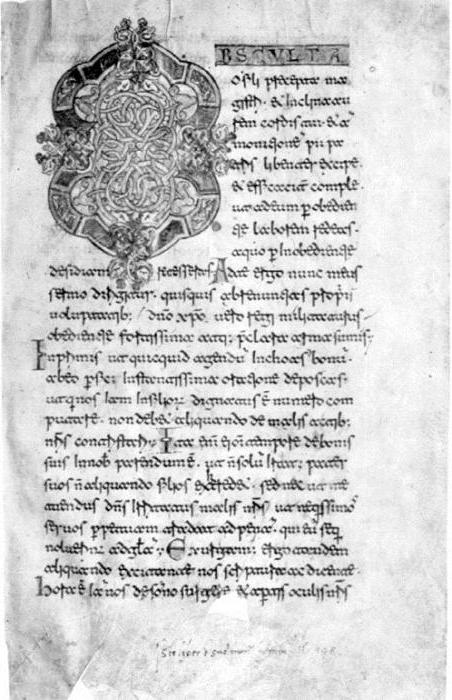 OBSCULTA
o fili precepta ma
gistri · & inclina au
rem cordis tui · & ad
monitione pii pa
tris libenter excipe
& efficaciter comple ·
ut ad eum p obedien
tie laborem redeas ·
a quo p inobedientie
desidiam recesseras Ad te ergo nunc meus
sermo dirigitur · quisquis abrenuntias propriis
voluptatib; dño xp̄o vero regi militaturus
obedientie fortissima atq; preclara arma sumis ·
Inprimis ut quicquid agendū inchoas boni ·
ab eo pfici instantissima oratione deposcas ·
ut qui nos iam in filior dignatus ē numero com
putare · non debet aliquando de malis actib;
nr̄is contristari · Ita enī ei omī tempore de bonis
suis in nob parendum ē · ut n̄ solū iratus pater
suos n̄ aliquando filios exheredet · sed nec ut me
tuendus dn̄s irritatus malis nr̄is ut nequissimos
servos ppetuam tradat ad penā · qui eū sequi
noluerint ad glā · Exurgam ergo tandem
aliquando excitante nos scriptura ac dicente ·
Hora ē iā nos de somno surgere & aptis oculis nr̄is